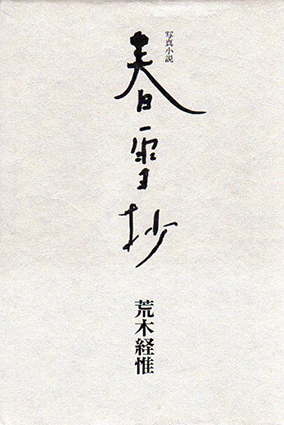 写真小説
春雪抄
荒木経惟